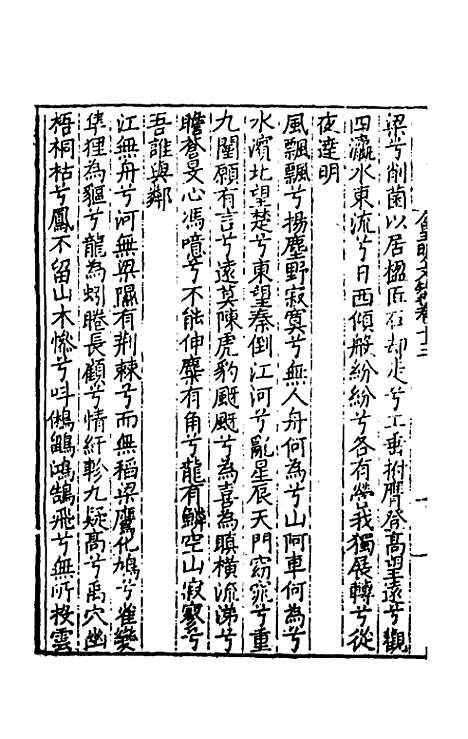 皇明文衡卷十三
梁兮削菌以居楹匠石却走兮工垂拊膺登高望遠兮觀
四瀛水東流兮日西傾般紛紛兮各有營我獨展轉兮從
夜達明
風飄飄兮揚塵野寂寞兮無人舟何為兮山阿車何為兮
水濱北望楚兮東望秦倒江河兮亂星辰天門窈窕兮重
九閽願有言兮遠莫陳虎豹颬颬兮為喜為瞋橫流涕兮
瞻蒼旻心馮噫兮不能伸麋有角兮龍有鱗空山寂寥兮
吾誰與鄰
江無舟兮河無梁隰有荆棘兮而無稻粱鷹化鳩兮雀變
隼狸為貙兮龍為蚓睠長顧兮情紆軫九疑高兮禹穴幽
梧桐枯兮鳳不留山木慘兮呌鵂鶹鴻鵠飛兮無所投雲